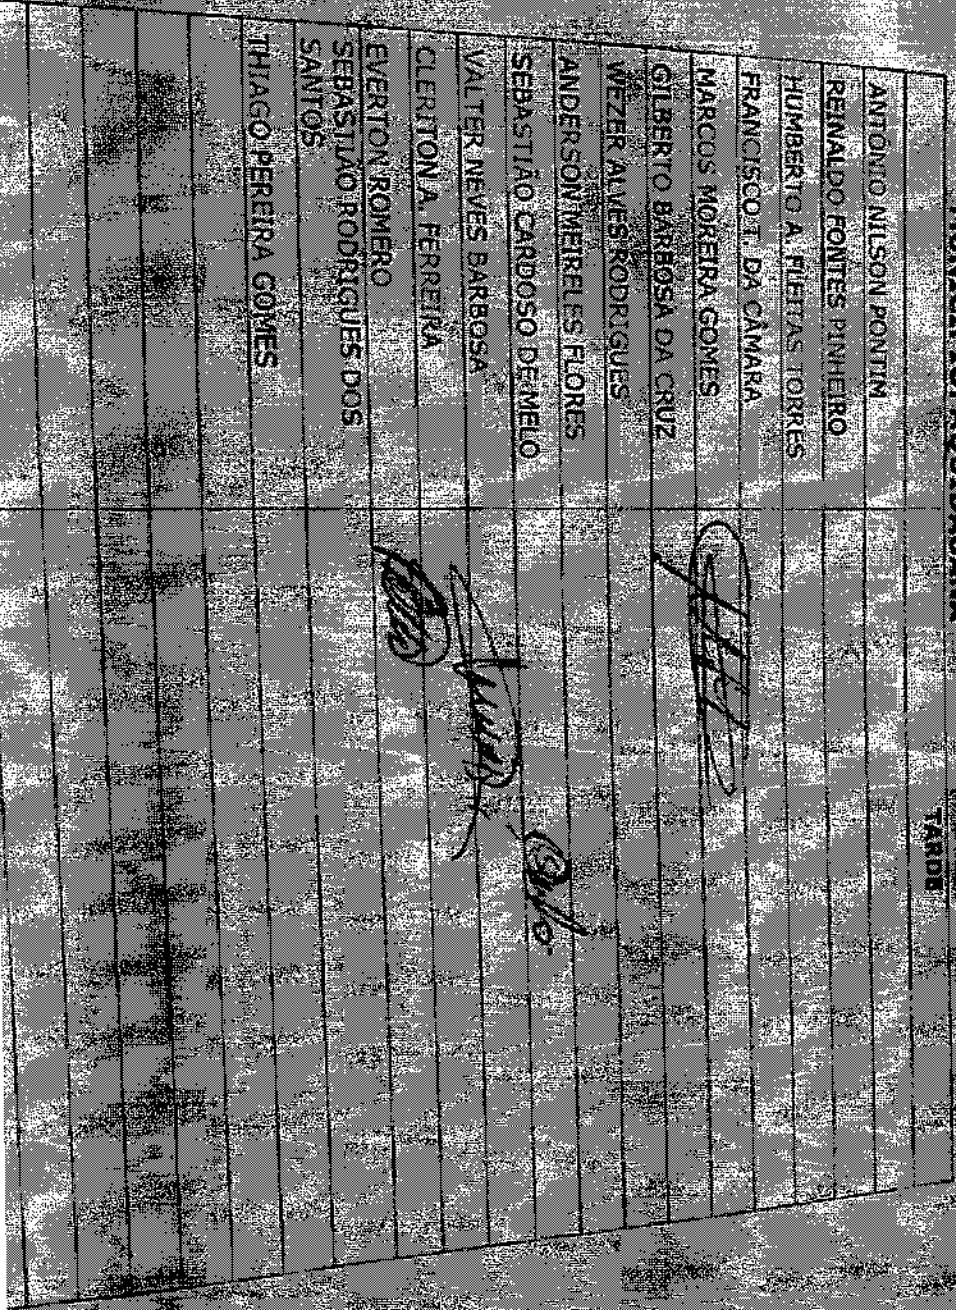 TARDE
ANTÔNIO NILSON PONTIM
REINALDO FONTES PINHEIRO
HUMBERTO A. FLEITAS TORRES
FRANCISCO T. DA CÂMARA
MARCOS MOREIRA GOMES
GILBERTO BARBOSA DA CRUZ
WEZER ALVES RODRIGUES
ANDERSON MEIRELES FLORES
SEBASTIÃO CARDOSO DE MELO
VALTER NEVES BARBOSA
CLERITON A. FERREIRA
EVERTON ROMERO
SEBASTIÃO RODRIGUES DOS
SANTOS
THIAGO PEREIRA GOMES